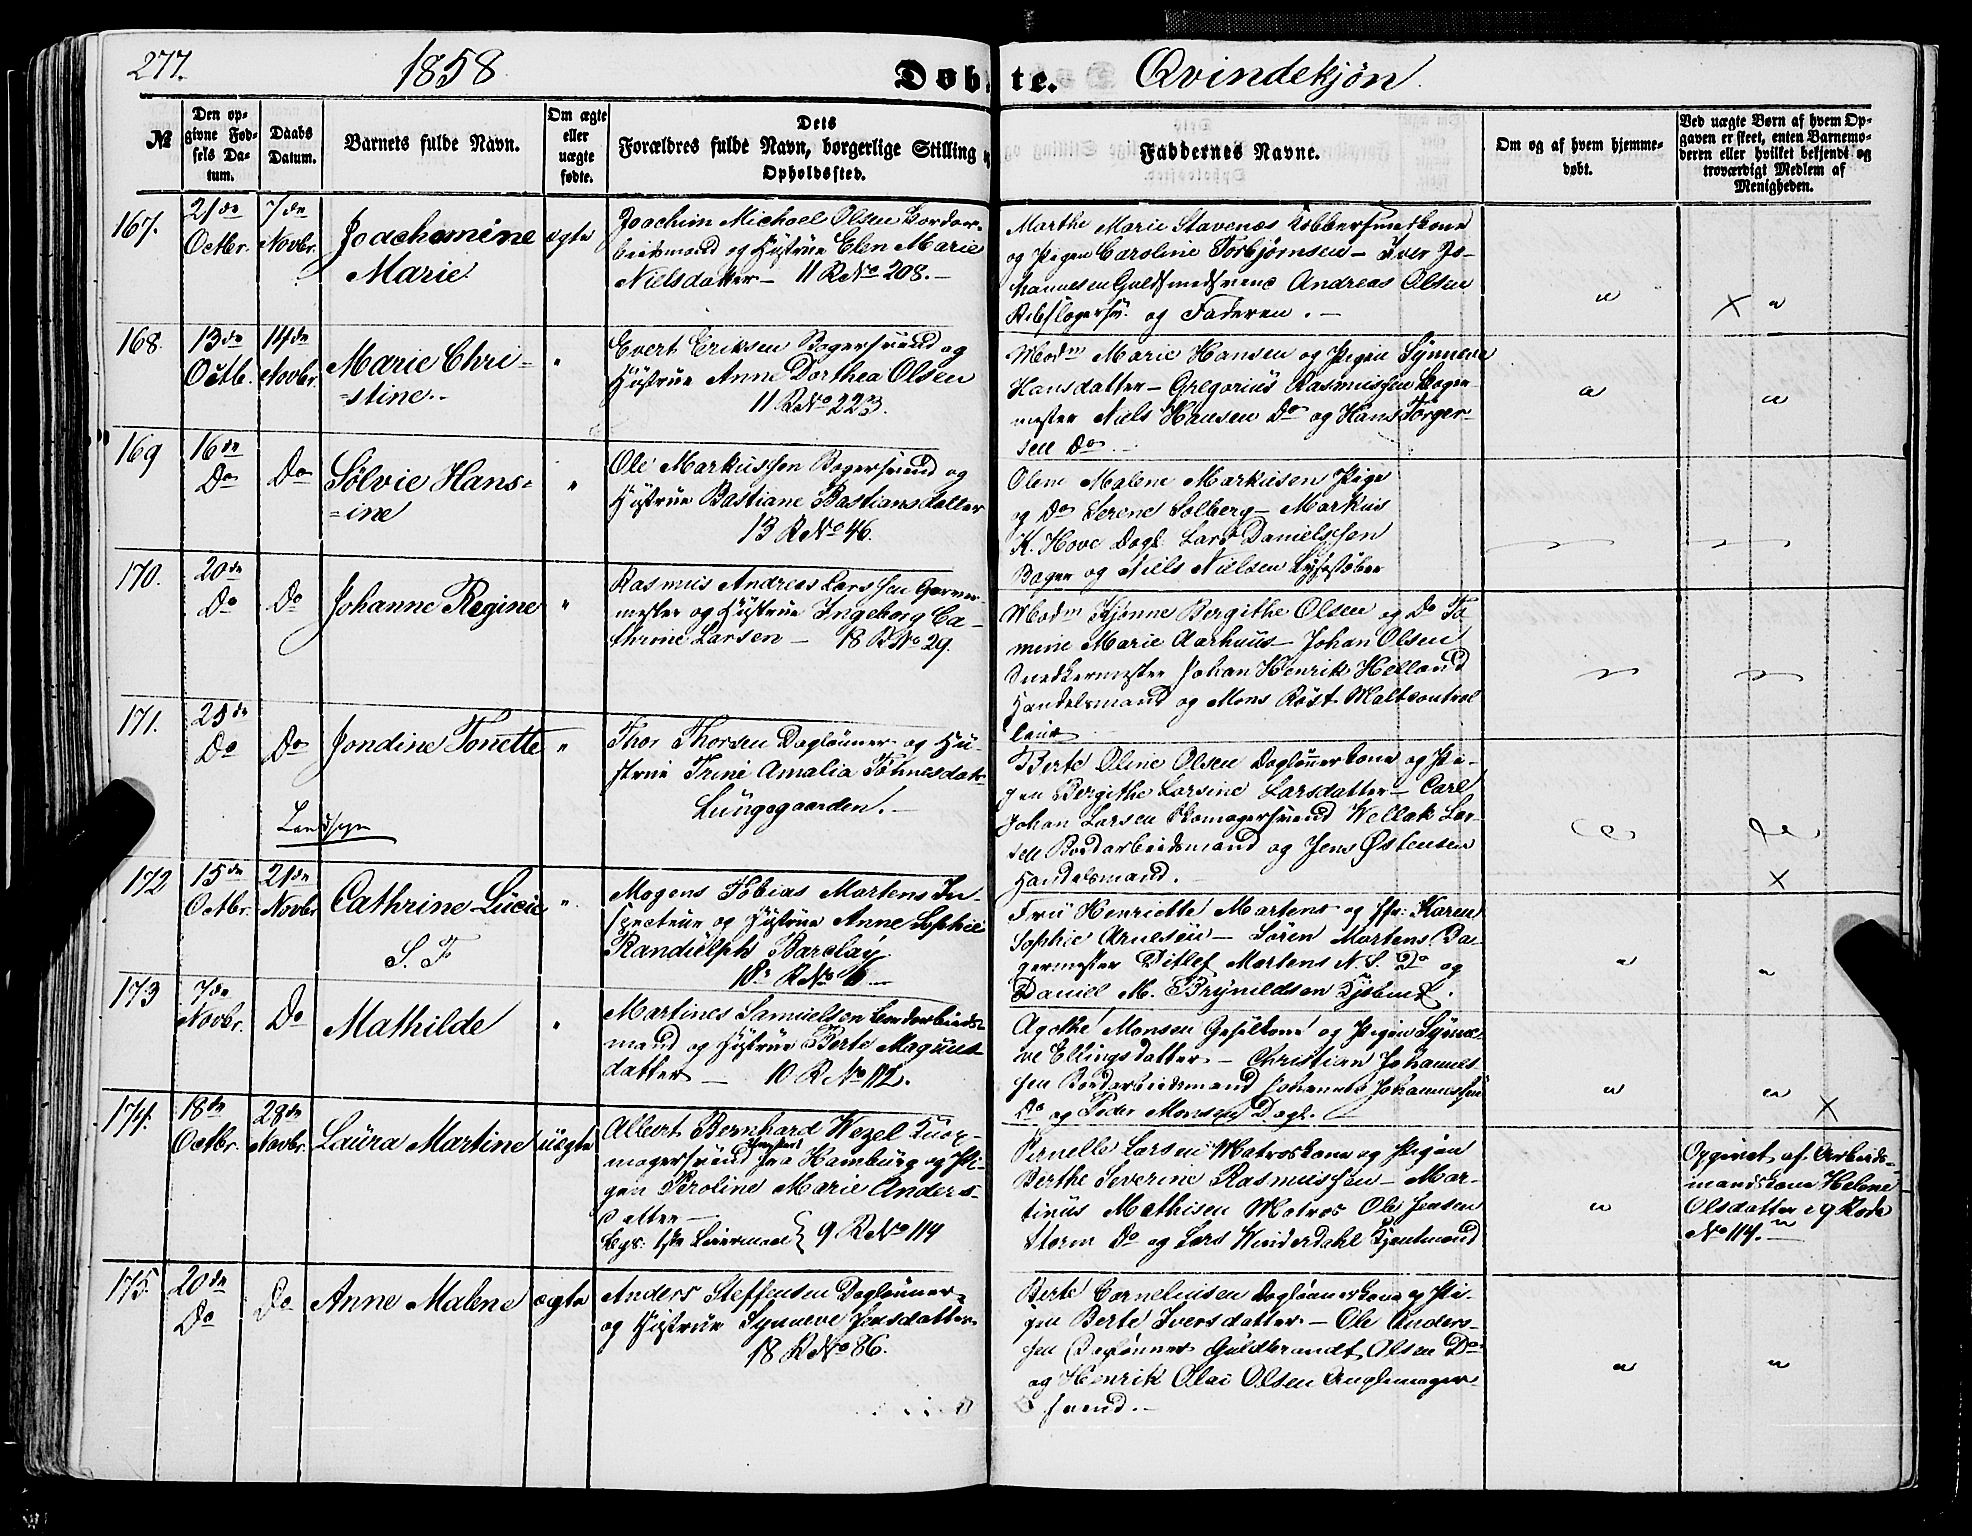 277. 1858 Døbte. Qvindekjøn
№
Den opgivne Fødsels Datum.
Daabs Datum.
Barnets fulde Navn.
Om ægte eller uægte fødte.
Dets Forældres fulde Navn, borgerlige Stilling og Opholdssted.
Faddernes Navne.
Om og af hvem hjemmedøbt.
Ved uægte Børn af hvem Opgaven er skeet, enten Barnemoderen eller hvilket bekjendt og troværdigt Medlem af Menigheden.
167. 21de Octbr. 7de Novbr. Joachomine Marie ægte
Joachim Michael Olsen Bordar-
beidsmand og Hustrue Elen Marie
Nielsdatter – 11 R No 208. –
Marthe Marie Stavenæs Kobbersmedkone
og Pigen Caroline Torbjørnsen – Iver Jo-
hannesen Guldsmedsvend Andreas Olsen
Rebslagersv. og Faderen. –
168. 13de Octb. 14de Novbr. Marie Chri-
=stine. "
Evert Eriksen Bagersvend og
Hustrue Anne Dorthea Olsen
11 R No 223.
Madm Marie Hansen og Pigen Synneve
Hansdatter – Gregorius Rasmussen Bager-
mester Niels Hansen Do og Hans Torger-
sen Do
169 16de Do Do Sølvie Hans=
=ine "
Ole Markussen Bagersvend og
Hustrue Bastiane Bastiansdatter
13 R No 46.
Olene Malene Markusen Pige
og Do Serene Solberg – Markus
K. Hove Dagl. Lars Danielssen
Bager og Niels Nielsen Lysestøber
170. 20de Do Do Johanne Regine "
Rasmus Andreas Larssen Garver-
mester og Hustrue Ingeborg Ca-
thrine Larsen – 18 R No 29.
Madm Bergithe Olsen og Do Ta-
mine Marie Aarhuus – Johan Olsen
Snedkermester Johan Henrik Helland
Handelsmand og Mons Røst Maltcontrol
leur
171. 25de Do Do Jondine Tonette "
Thor Thorsen Daglønner og Hu-
strue Trine Amalia Tønnesdatr
Lungegaarden. –
Berte Oline Olsen Dagløunerkone og Pi-
gen Bergithe Larsine Larsdatter – Carl
Johan Larsen Skomagersvend Wellak Lar-
sen Bordarbeidsmand og Jens Østensen
Handelsmand.
172 15de Octbr. 21de Novbr Cathrine Lucie "
S. F
Mogens Tobias Martens In-
specteur og Hustrue Anne Sophie
Randulph Barclay
Frü Henriette Martens og Karen
Sophie Arnesen – Søren Martens Ba-
germester Ditlef Martens N. S. Do og
Daniel M. Brynildsen Kjøbmd.
173 7de Novbr. Do Mathilde "
Martines Samuelsen Bordarbeids-
mand og Hustrue Berte Magnus-
datter – 10 R No 112.
Agathe Monsen Gesellkone og Pigen Synne-
ve Ellingsdatter – Christian Johannes-
sen Bordarbeidsmand Johannes Johannessen
Do og Peder Monsen Dagl.
174. 18de Octbr. 28de Novbr. Laura Martine uægte
Albert Bernhard Wezel
magersvend fra Hamburg og Pi-
gen Peroline Marie Anders-
datter –
Begs: 1ste Leiermaal } 9 R No 114
Pernelle Larsen Matroskone og Pigen
Berthe Severine Rasmussen – Mar-
tinus Mathisen Matros Ole Jensen
Storm Do og Lars Winderdahl
Opgivet af Arbeids-
mandskone Helene
Olsdatter i 9 Rode
No 114. –
175. 20de Do Do Anne Malene ægte
Anders Steffensen Dagløuner
og Hustrue Synneve Jensdatter
18 R No 86.
Berte Cornelinsen Dagløunerkone og Pi-
gen Berte Iversdatter – Ole Anders-
sen Dagløuner Guldbrandt Olsen Do
og Henrik Olai Olsen
svend. –